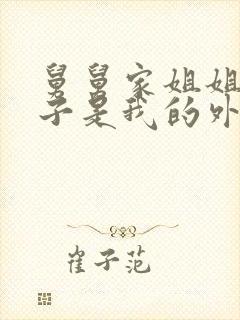 舅舅家姐姐
子是我的外
崔子范